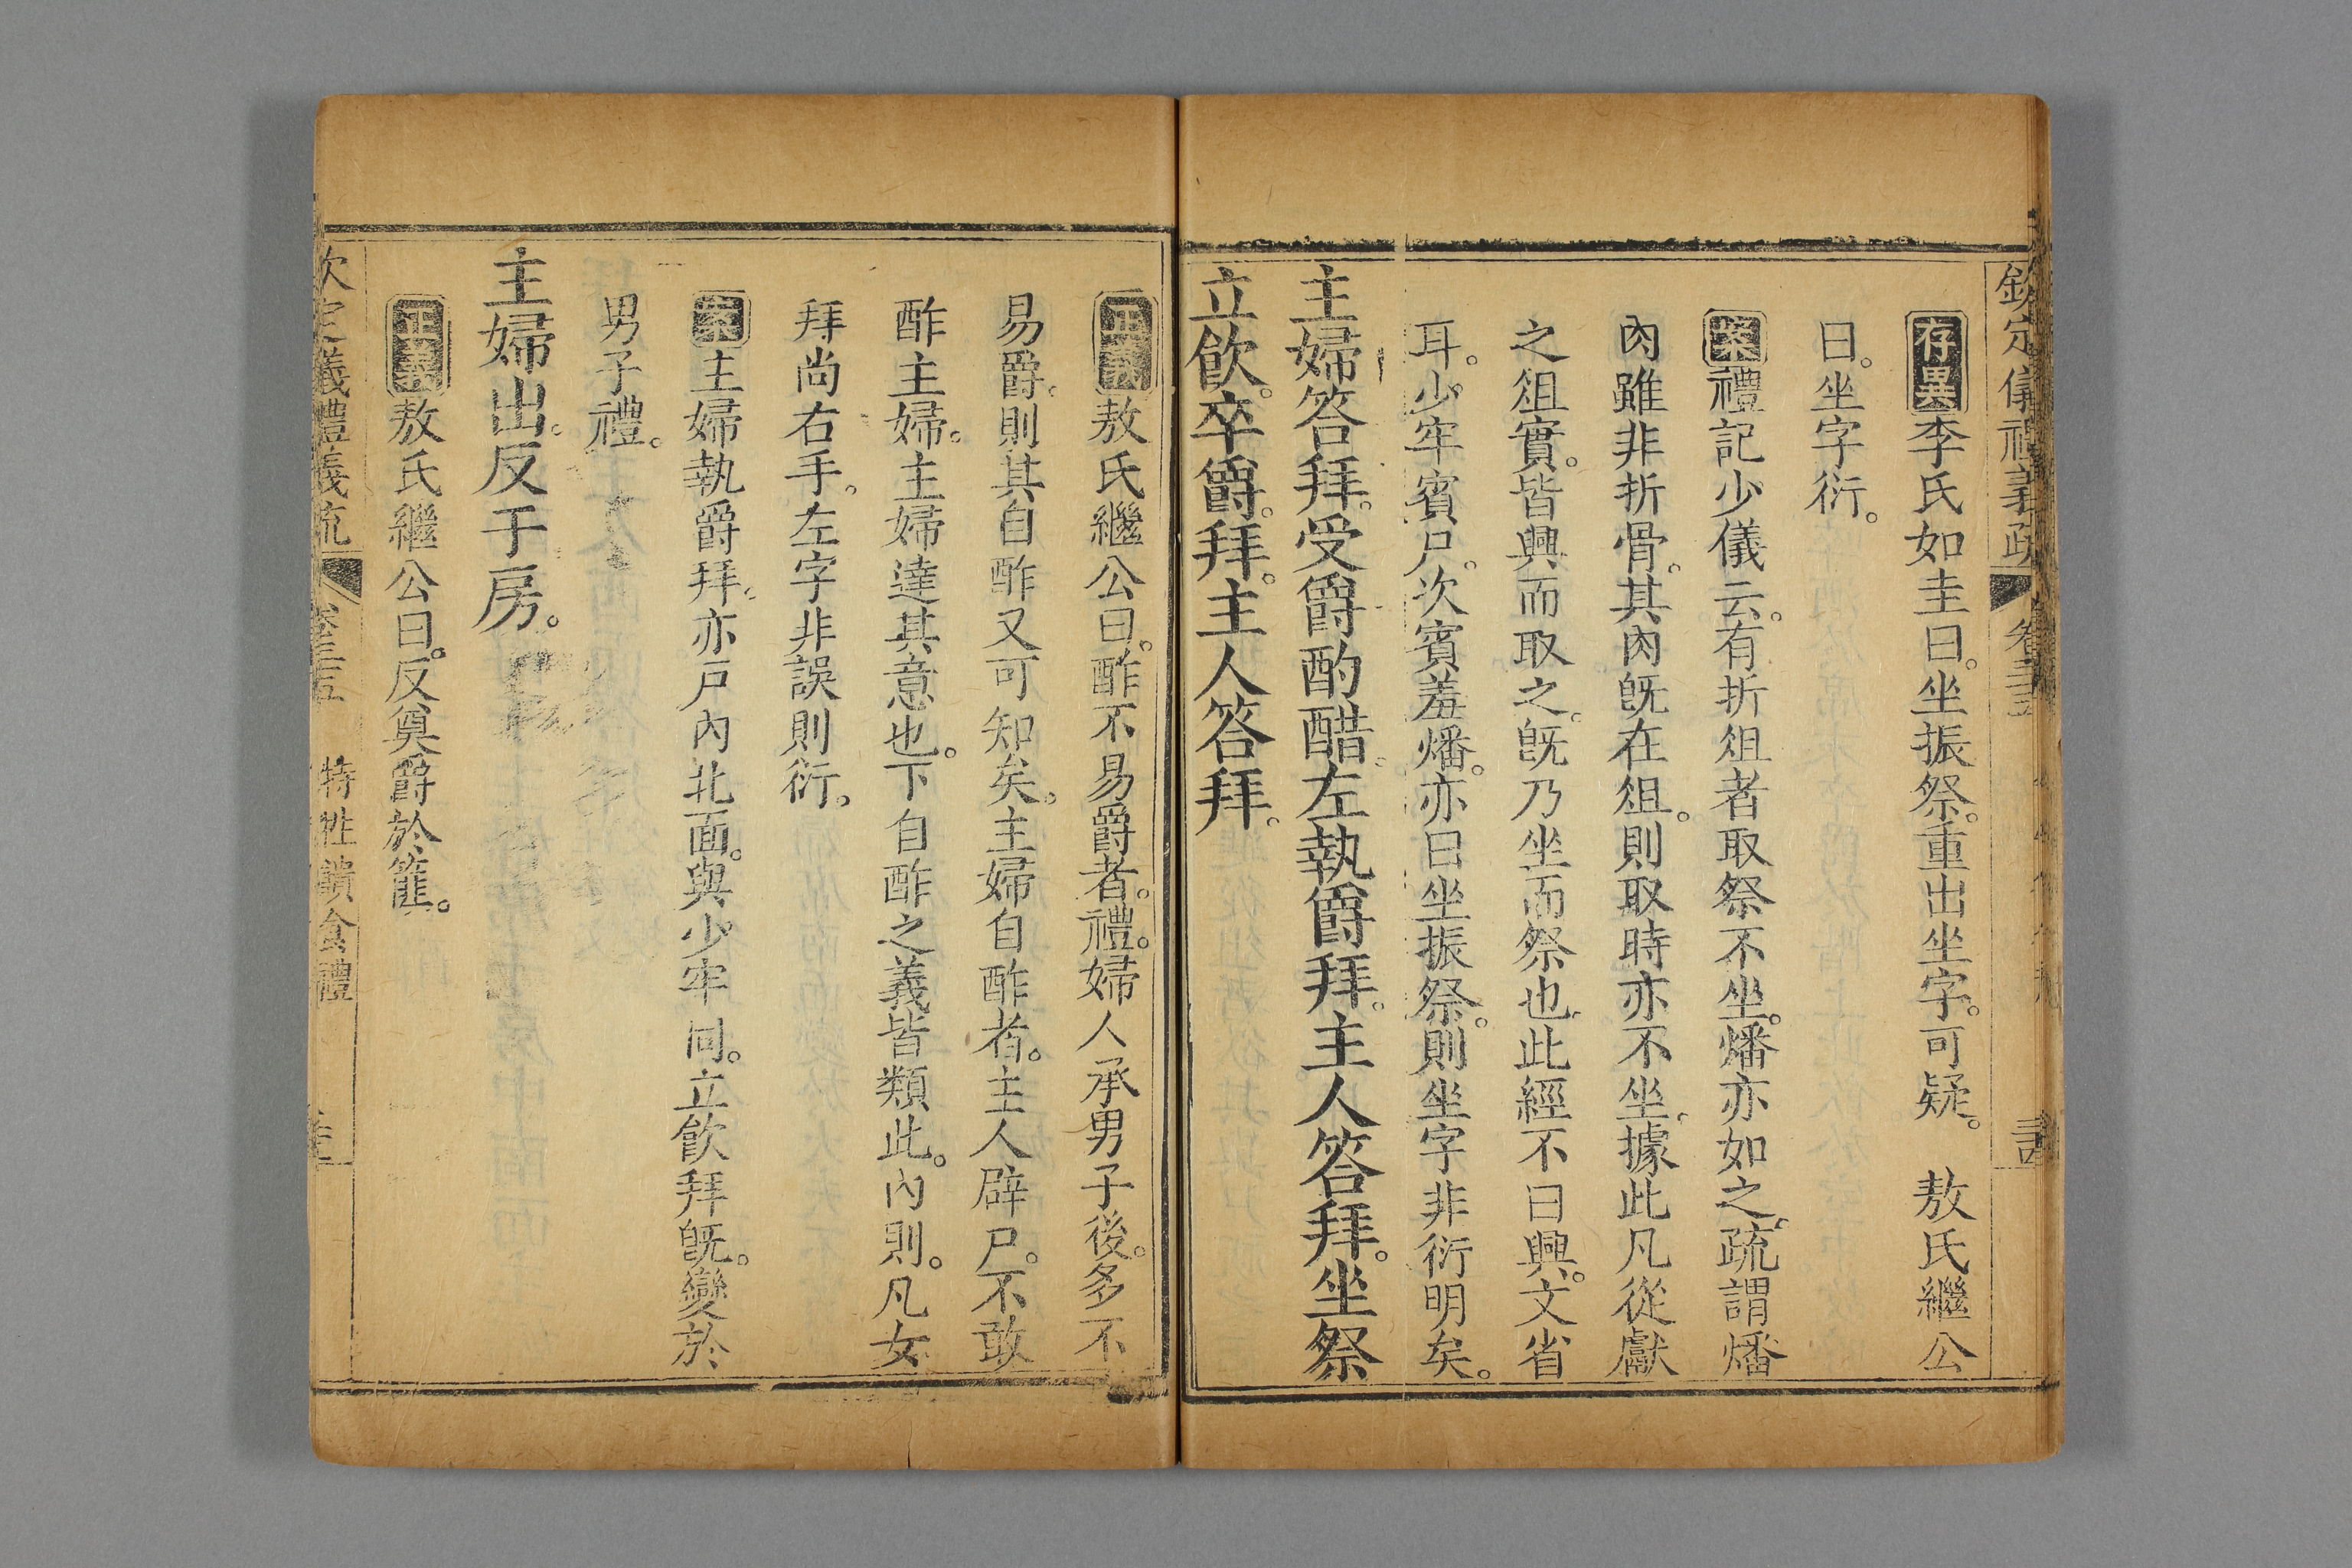 欽定儀禮義疏 卷三五
存異李氏如圭曰。坐振祭。重出坐字。可疑。 敖氏繼公
曰。坐字衍。
案禮記少儀云。有折俎者取祭不坐。燔亦如之。疏謂燔
肉雖非折骨。其肉旣在俎。則取時亦不坐。據此凡從獻
之俎實。皆興而取之。旣乃坐而祭也。此經不曰興。文省
耳。少牢賓尸。次賓羞燔。亦曰坐振祭。則坐字非衍明矣。
主婦答拜。受爵酌醋。左執爵拜。主人答拜。坐祭
立飲。卒爵。拜。主人答拜。
正義敖氏繼公曰。酢不易爵者。禮。婦人承男子後。多不
易爵。則其自酢又可知矣。主婦自酢者。主人辟尸。不敢
酢主婦。主婦達其意也。下自酢之義皆類此。內則。凡女
拜尚右手。左字非誤則衍。
案主婦執爵拜。亦戶內北面。與少牢同。立飲拜旣。變於
男子禮。
主婦出。反于房。
正義敖氏繼公曰。反奠爵於篚。
欽定儀禮義疏 卷三五 特牲饋食禮